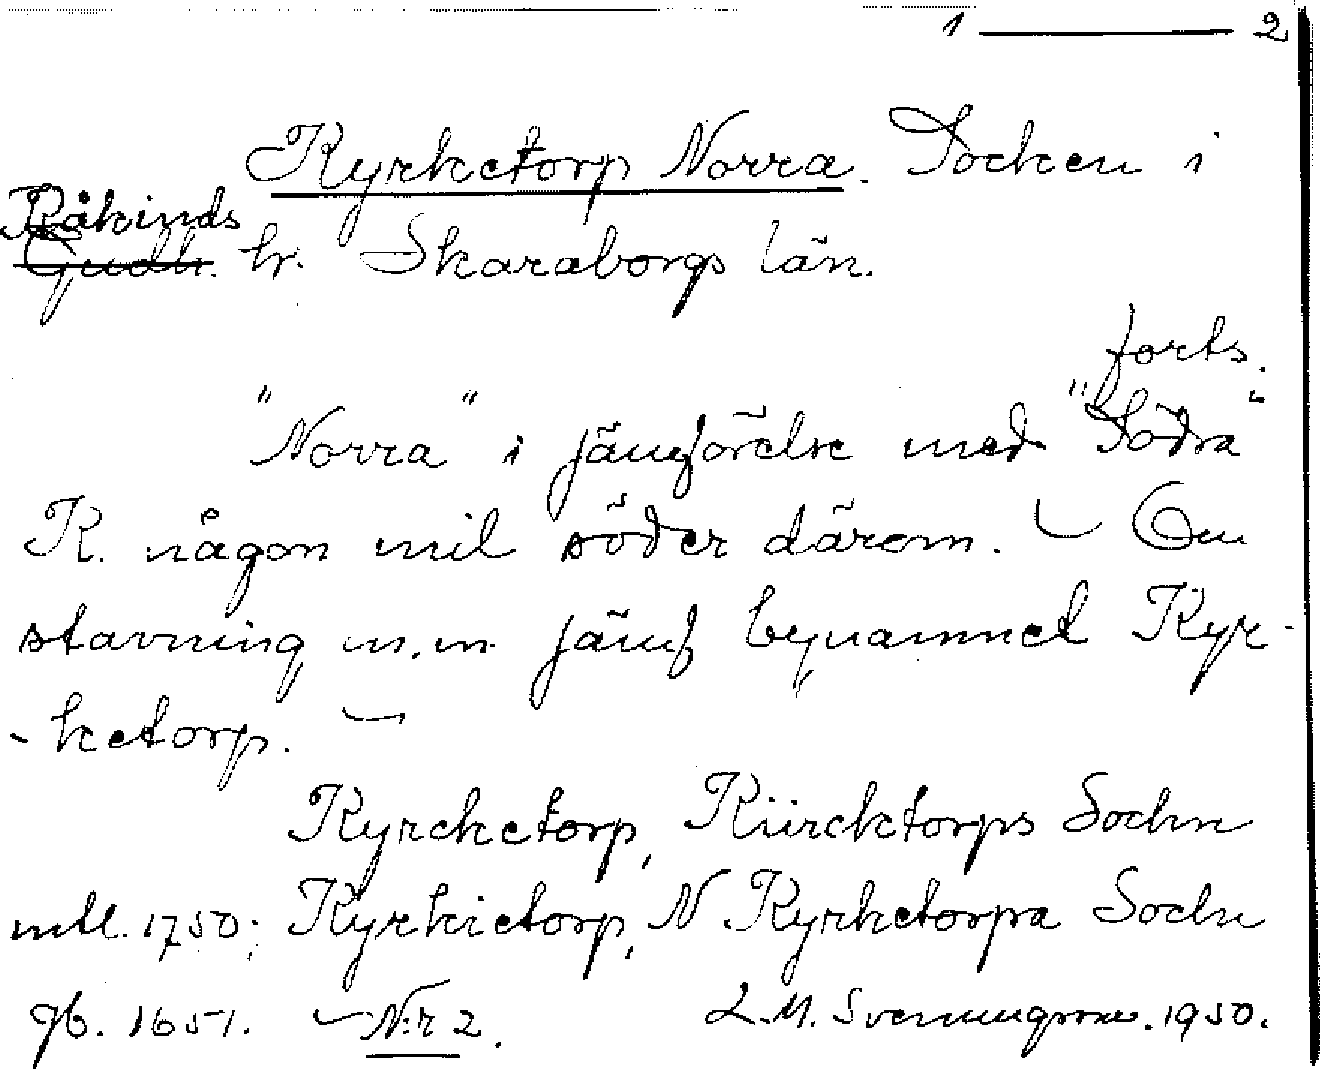 1 — 2
Kyrketorp Norra. Socken i
Kåkinds
Gudh. hr. Skaraborgs län.
forts.
"Norra" i jämförelse med "Södra"
K. någon mil söder därom. — Om
stavning m.m jämf bynamnet Kyr-
-ketorp. —
Kyrcketorp, Kürcktorps Sochn
mtl. 1750; Kyrkietorp, N Kyrketorpa Sochn
jb. 1651. — N:r 2. L.M. Svenungsson. 1950.